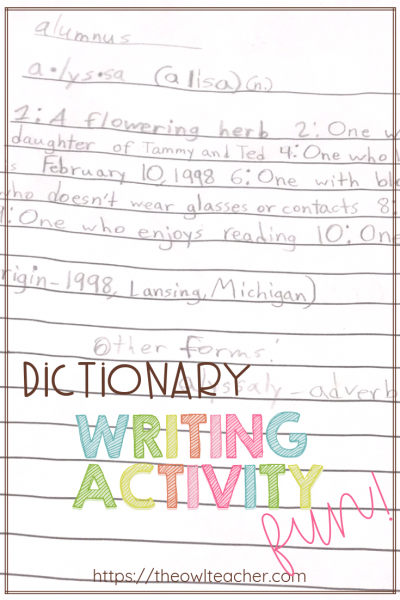 alumnus
a•lys•sa (alisa) (n.)
1: A flowering herb 2: One w
daughter of Tammy and Ted 4: One who
is February 10, 1998 6: One with bl
who doesn't wear glasses or contacts 8:
: One who enjoys reading 10: One
rigin-1998, Lansing, Michigan)
Other forms:
DICTIONARY
ssaly - adverb
WRITING
ACTIVITY
fun!
https://theowlteacher.com